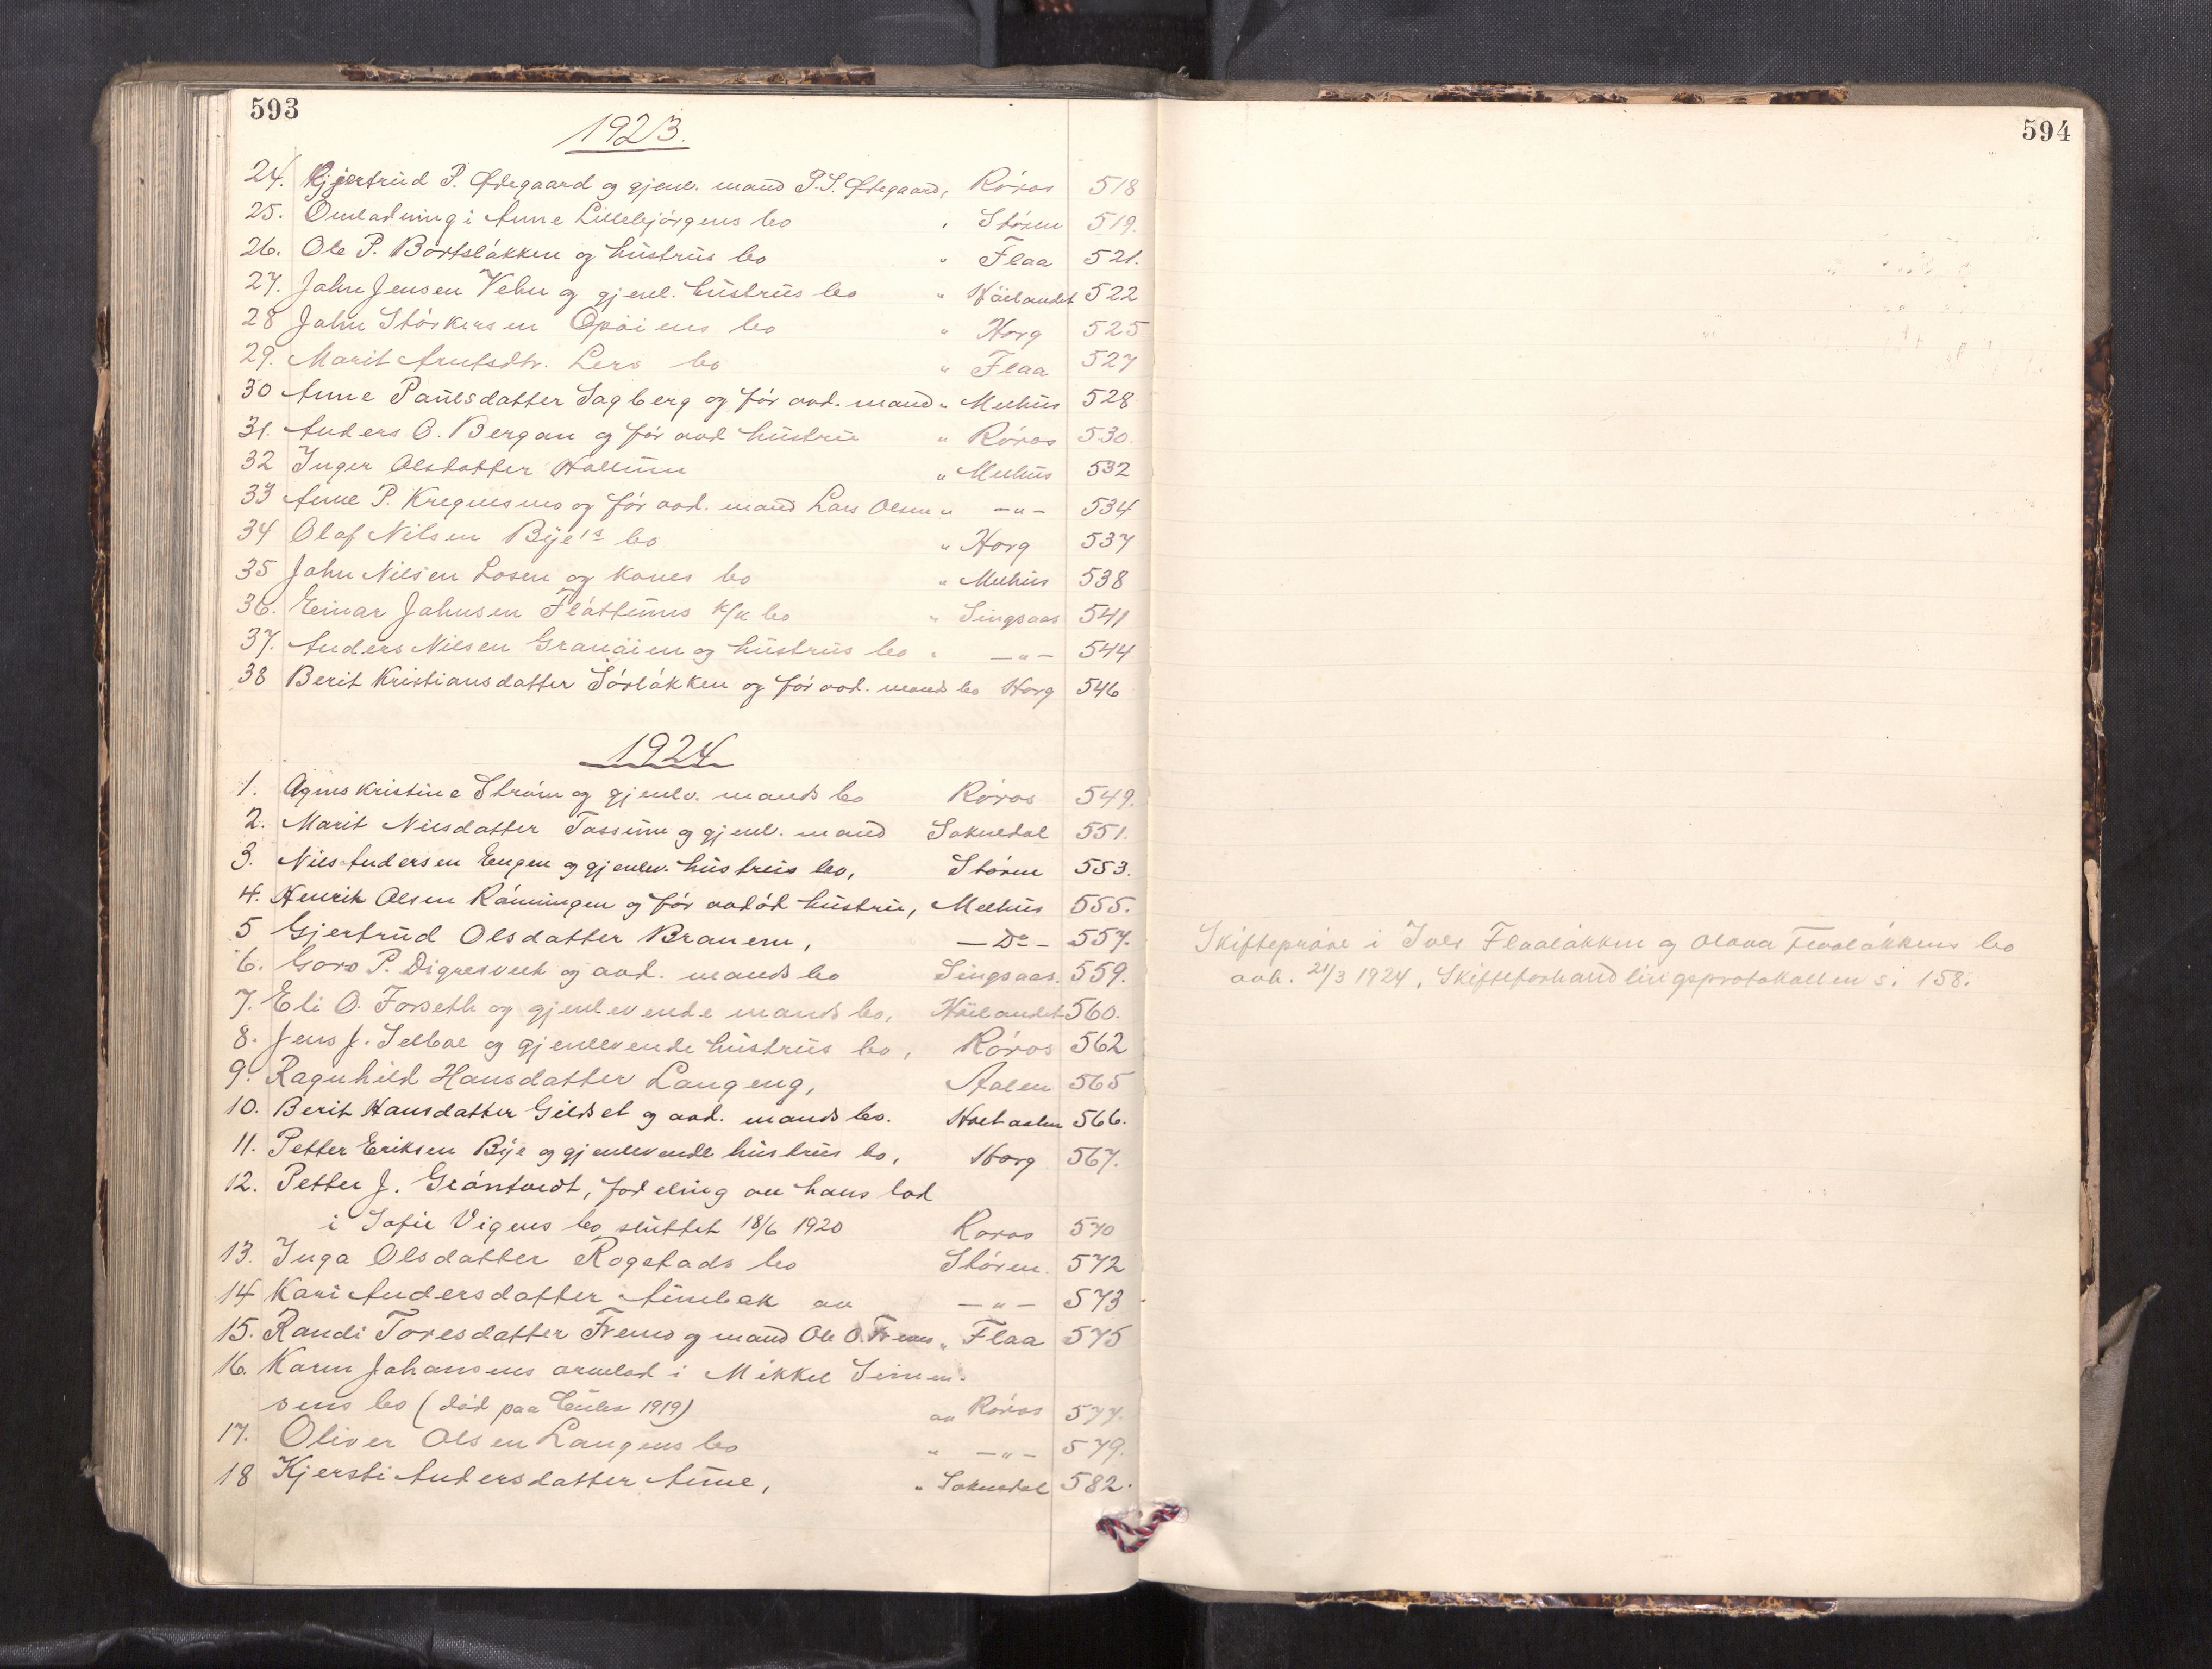 593
1923.
24. Gjertrud P. Ødegaard og gjenl. mand P.S. Ødegaard, Röros 518
25. Omlodning i Anne Lillebjörgens bo " Stören 519.
26. Ole P. Bortslökken og hustrus bo " Flaa 521.
27. John Jensen Vehn og gjenl. hustrus bo " Höilandet 522
28 John Störkersen Opöiens bo " Horg 525
29. Marit Arntsdtr. Lers bo " Flaa 527
30 Anne Paulsdatter Sagberg og för avd. mand " Melhus 528
31. Anders O. Bergan og för avd hustru " Röros 530.
32 Inger Olsdatter Hollum " Melhus 532
33 Anne P. Kregnesmo og för avd. mand Lars Olsen " -"- 534
34 Olaf Nilsen Bye's bo " Horg 537
35 John Nilsen Losen og kones bo " Melhus 538
36. Einar Johnsen Flöttums k/k bo " Singsaas 541
37. Anders Nilsen Granöien og hustrus bo " -"- 544
38 Berit Kristiansdatter Sörlökken og för avd. mands bo Horg 546
1924
1. Agnes Kristine Ström og gjenlv. mands bo Röros 549.
2. Marit Nilsdatter Tossum og gjenl. mand Soknedal 551.
3. Nils Andersen Engen og gjenlev. hustrus bo, Stören 553.
4. Henrik Olsen Rönningen og för avdöd hustru, Melhus 555.
5 Gjertrud Olsdatter Branem, - Do - 557.
6. Goro P. Digresvedt og avd. mands bo Singsaas. 559.
7. Eli O. Forseth og gjenlevende mands bo, Höilandet 560.
8. Jens J. Selboe og gjenlevende hustrus bo, Röros 562
9. Ragnhild Hansdatter Langeng, Aalen 565
10. Berit Hansdatter Gildset og avd. mands bo. Holtaalen 566.
11. Petter Eriksen Bye og gjenlevende hustrus bo, Horg 567.
12. Petter J. Gröntvedt, fordeling av hans lod
i Sofie Vigens bo sluttet 18/6 1920 Röros 570
13. Inga Olsdatter Rogstads bo Stören. 572
14 Kari Andersdatter Aunebak av -"- 573
15. Randi Toresdatter Fremo og mand Ole O. Fremo " Flaa 575
16. Karen Johansens arvelod i Mikkel Simen-
sens bo (död paa 1919) av Röros 577.
17. Oliver Olsen Langens bo " -"- 579.
18 Kjersti Andersdatter Aune, " Soknedal 582.
594
Skifteprøve i Iver Flaalökken og Olava Flaalökkens bo
avh. 21/3 1924, Skifteforhandlingsprotokollen s. 158.